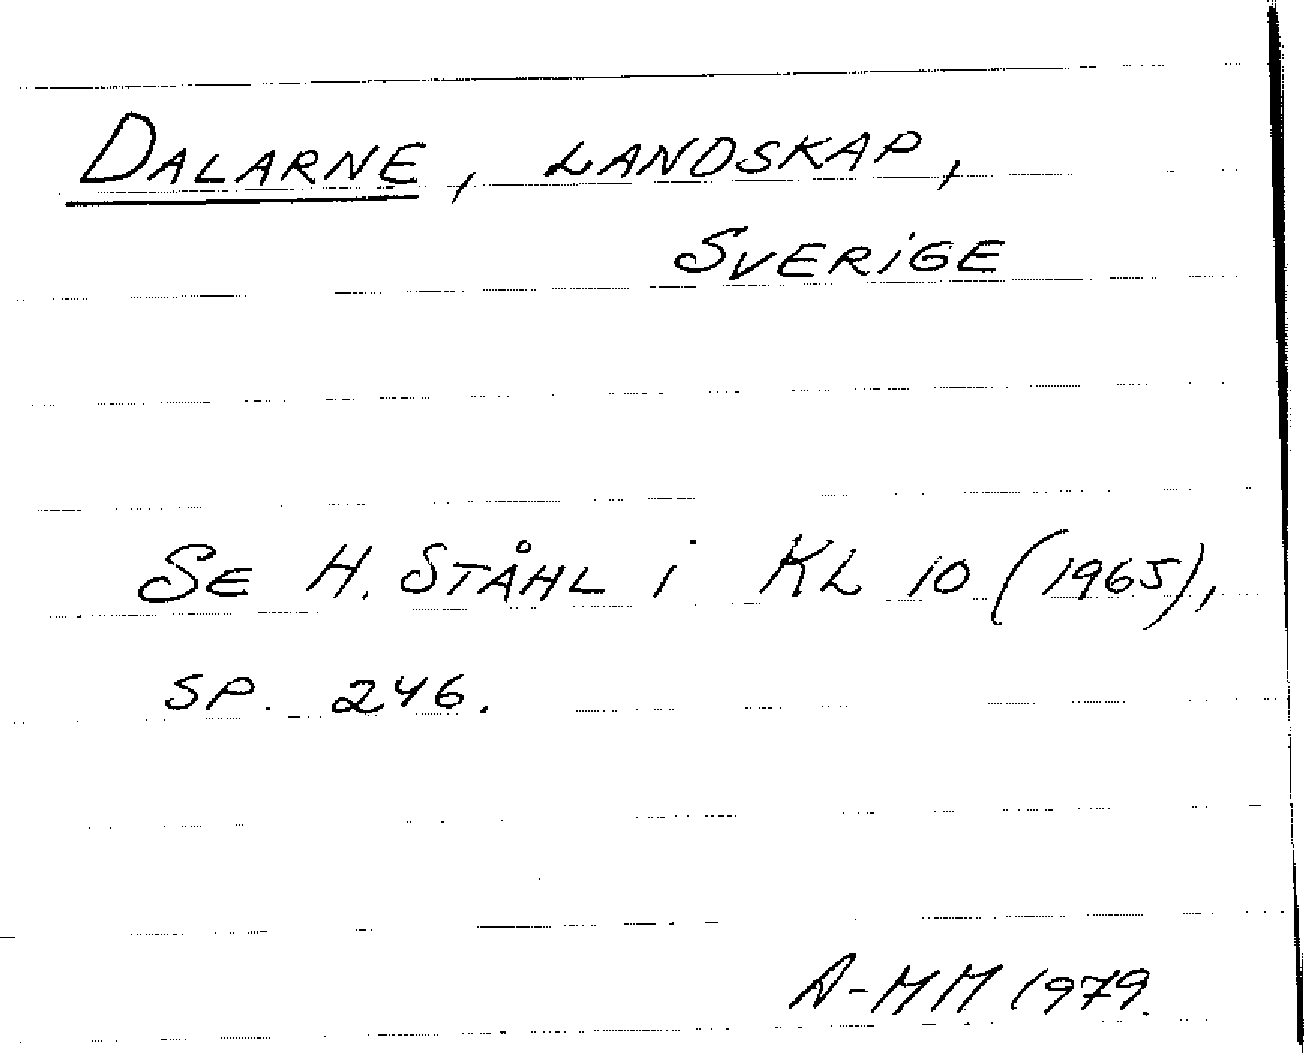 DALARNE, LANDSKAP,
SVERIGE
SE H. STÅHL i KL 10 (1965),
SP. 246.
A-MM 1979.